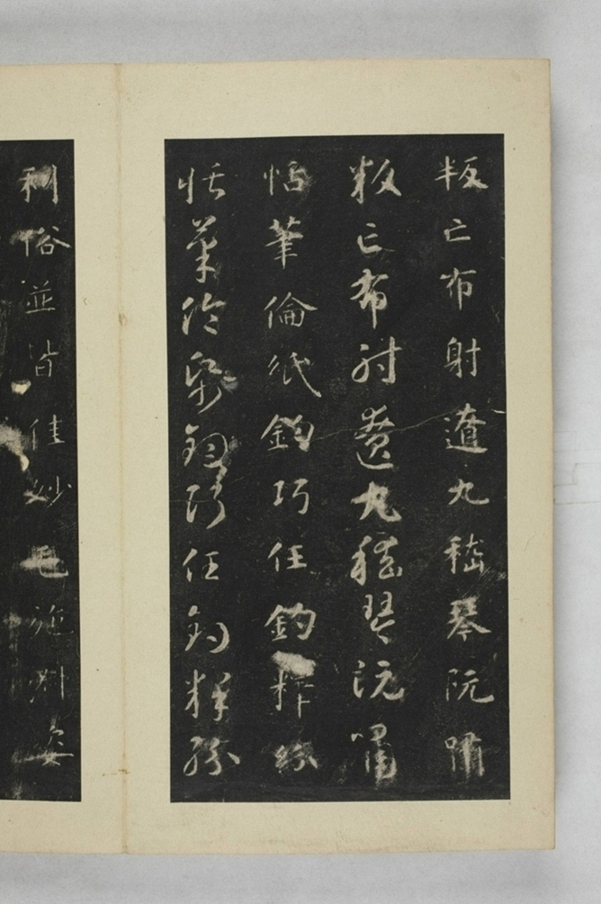 叛亡布射遼丸嵇琴阮嘯
叛亡布射遼丸嵇琴阮嘯
恬筆倫紙鈞巧任釣釋紛
恬筆倫紙鈞巧任釣釋紛
利俗並皆佳妙毛施淑姿